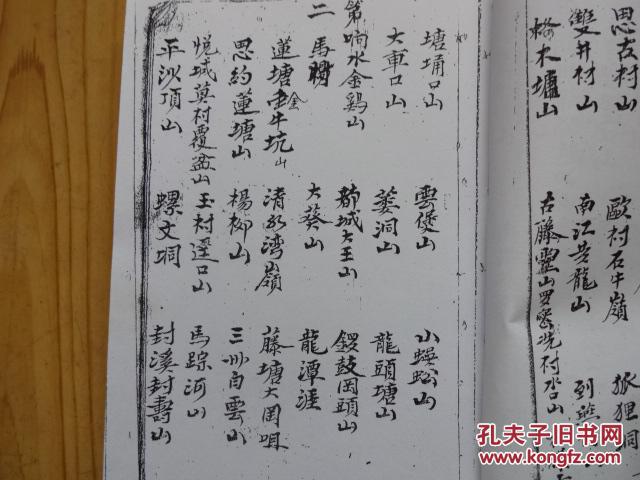 思茂村山
歐村石牛嶺
狐狸洞
雙井村山
南江老龍山
木壚山
古藤靈山
塘埇口山
雲煲山
小蜈蚣山
大車口山
蔞洞山
龍頭塘山
第响水金鷄山
都城大王山
鑼鼓岡頭山
二馬
大葵山
龍潭涯
蓮塘金牛坑山
清水湾山嶺
藤塘大岡咀
思約蓮塘山
楊柳山
三州白雲山
悦城莫村覆盆山
玉村逕口山
馬踪河山
平沙頂山
螺文垌
封溪封壽山
孔夫子旧书网
www.kongfz.com